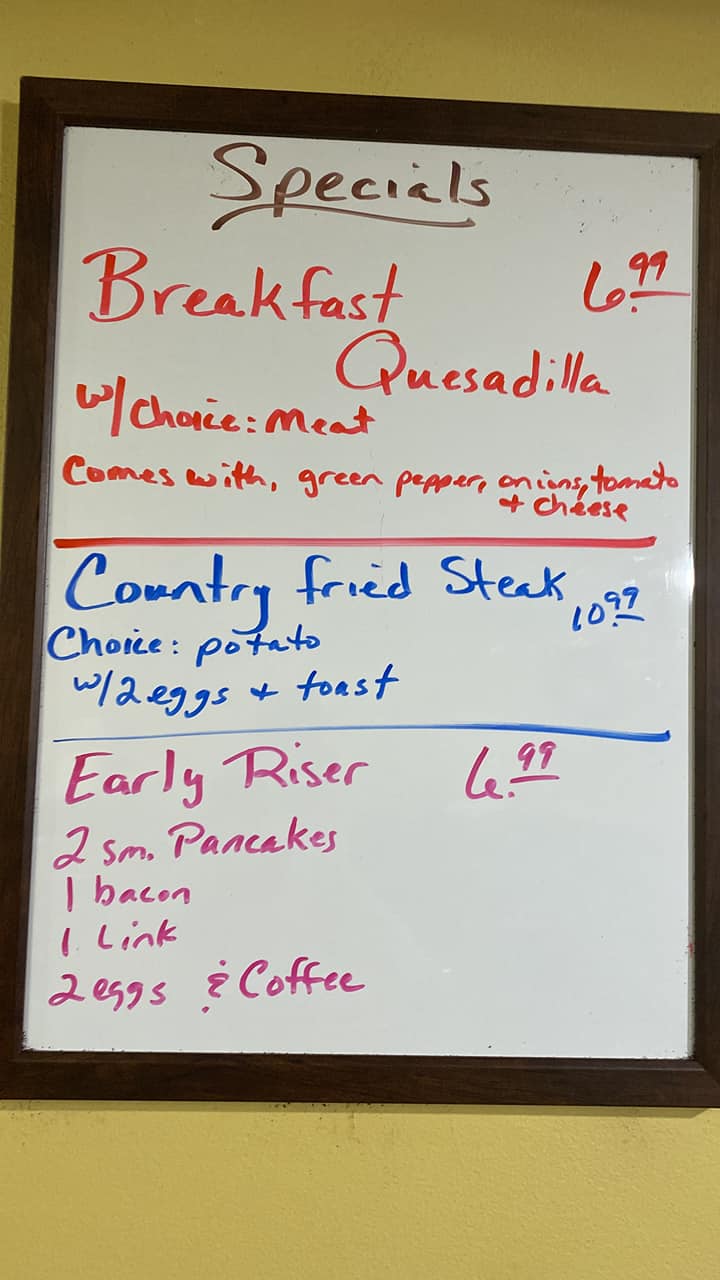 Specials
Breakfast 6.99
Quesadilla
w/choice: meat
Comes with, green pepper, onions, tomato
+ cheese
Country fried Steak 10.99
Choice: potato
w/2 eggs + toast
Early Riser 6.99
2 sm. Pancakes
1 bacon
1 Link
2 eggs & Coffee